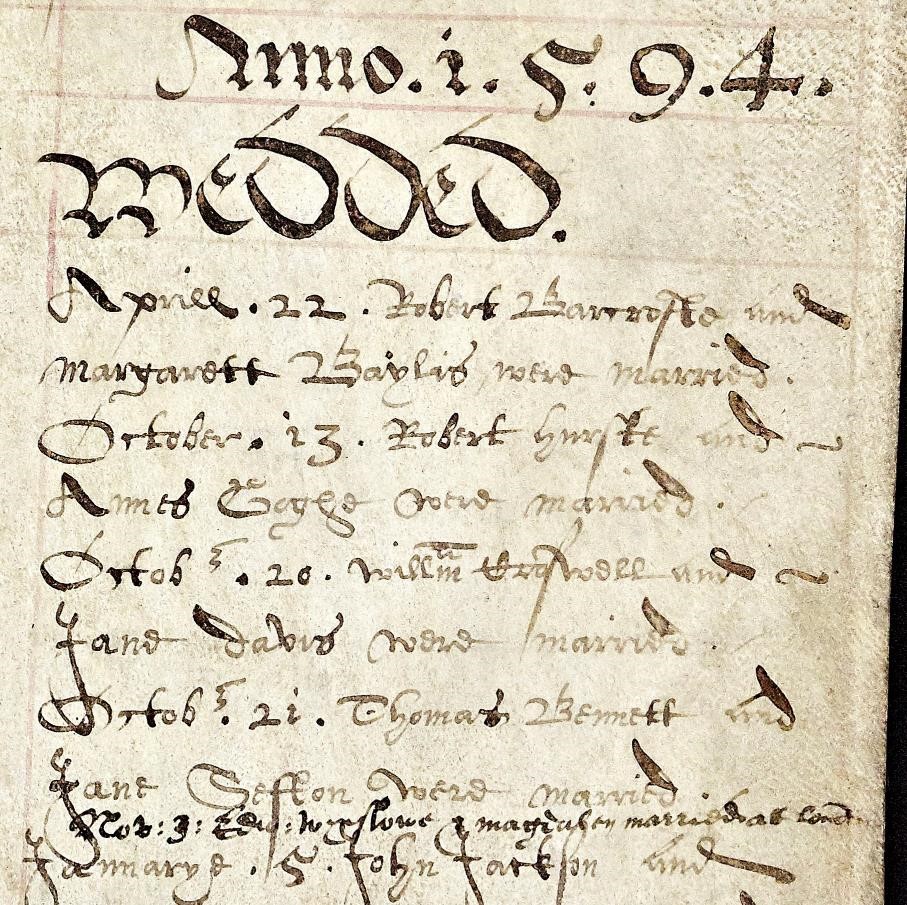 Anno. 1. 5. 9. 4.
Wedded.
Aprill . 22 . Robert Barcrofte and
Margarett Baylis were married .
October . 13 . Robert hurste and
Annes Goghe were married .
Octobr . 20 . Willm and
Jane Davis were married .
Octobr . 21 . Thomas Bennett and
Jane Sefton were married
Nov: 3: Edw: Wynslowe & magdalen married at
Jannarye . 5 . John Jackson and